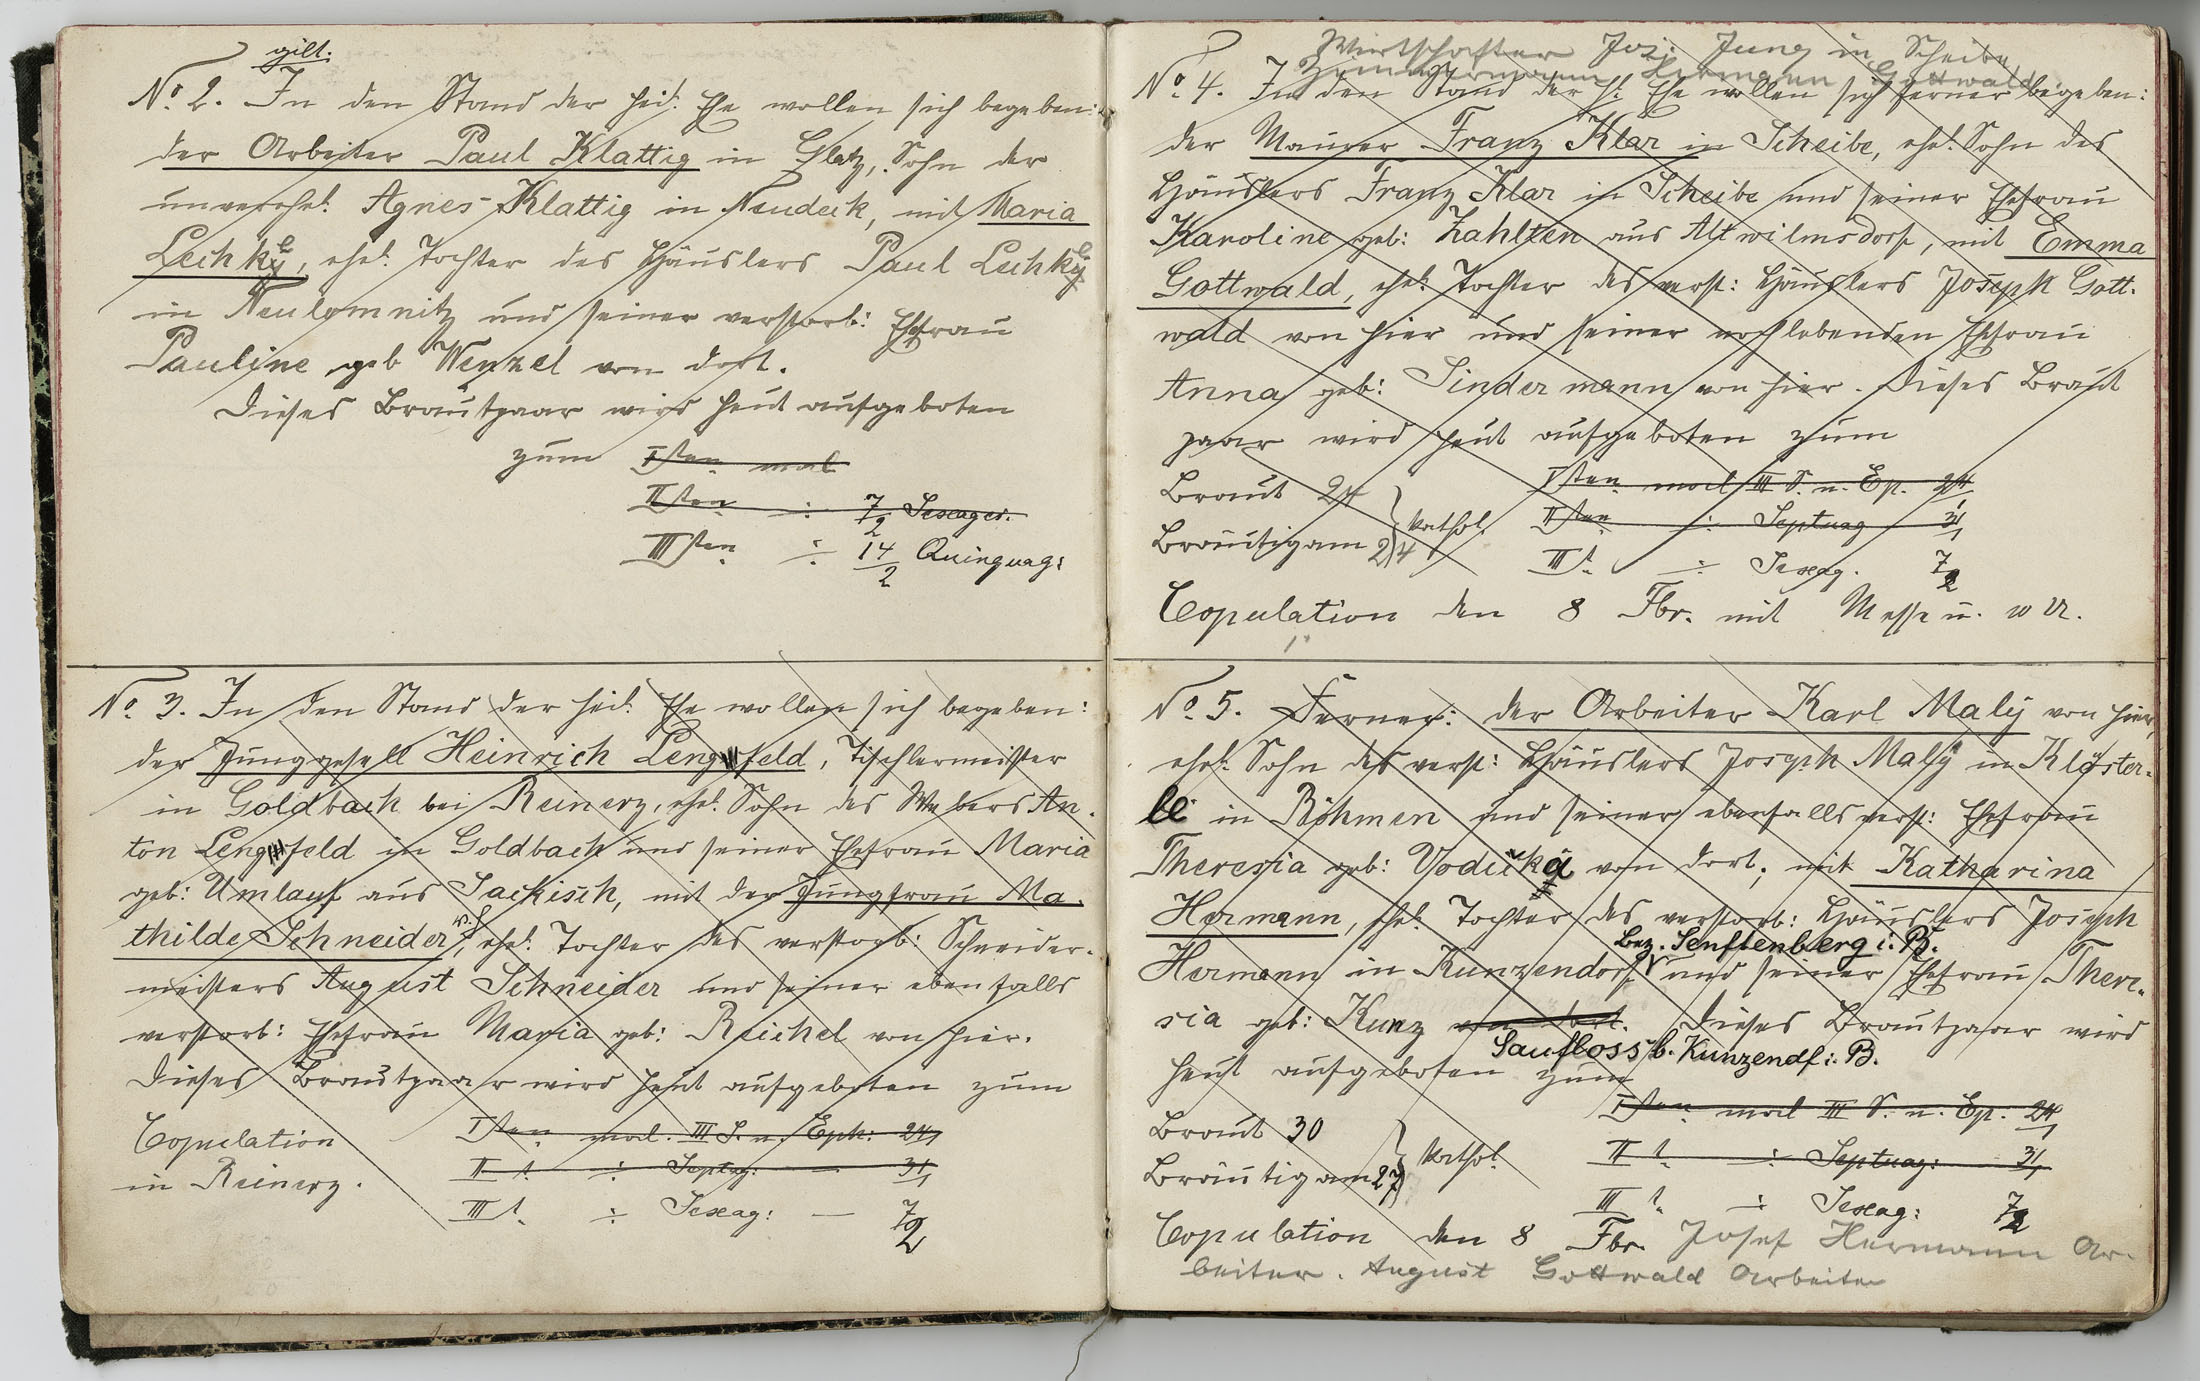 gilt.
No. 2. In den Stand der heil. Ehe wollen sich begeben:
der Arbeiter Paul Klattig in Glatz, Sohn der
unverehel. Agnes Klattig in Neudeck, mit Maria
, ehel. Tochter des Häuslers Paul
in Neulomnitz und seiner verstorb: Ehefrau
Pauline geb Wenzel von dort.
Dieses Brautpaar wird heut aufgeboten
zum Isten mal
IIsten ÷ 7/2 Sexages.
IIIsten ÷ 14/2 Quinquag:
No. 3. In den Stand der heil. Ehe wollen sich begeben:
der Junggesell Heinrich Lengfeld, Tischlermeister
in Goldbach bei Reinerz, ehel. Sohn des Webers An-
ton Lengfeld in Goldbach und seiner Ehefrau Maria
geb: Umlauf aus Sackisch, mit der Jungfrau Ma-
thilde Schneider, ehel. Tochter des verstorb: Schneider-
meisters August Schneider und seiner ebenfalls
verstorb: Ehefrau Maria geb: Reichel von hier.
Dieses Brautpaar wird heut aufgeboten zum
Copulation
in Reinerz.
Isten mal. III S. n. Eph: 24/1
II t. ÷ Septug: — 31/1
III t. ÷ Sexag: — 7/2
Wirtschafter Jos: Jung in Scheibe
Zimmermann Hermann Gottwald
No. 4. In den Stand der h: Ehe wollen sich ferner begeben:
der Maurer Franz Klar in Scheibe, ehel. Sohn des
Häuslers Franz Klar in Scheibe und seiner Ehefrau
Karoline geb: Zahlten aus Altwilmsdorf, mit Emma
Gottwald, ehel. Tochter des verst: Häuslers Joseph Gott-
wald von hier und seiner noch lebenden Ehefrau
Anna geb: Sindermann von hier. Dieses Braut
paar wird heut aufgeboten zum
Braut 24
Bräutigam 24 } kathol.
Isten mal III S. n. Ep. 24/1
IIsten ÷ Septuag 31/1
III t. ÷ Sexag. 7/2
Copulation den 8 Fbr. mit Messe u.
No. 5. Ferner: der Arbeiter Karl Maly von hier,
ehel. Sohn des verst: Häuslers Joseph Maly in Klöster-
le in Böhmen und seiner ebenfalls verst: Ehefrau
Theresia geb: von dort, mit Katharina
Hermann, ehel. Tochter des verstorb: Häuslers Joseph
Bez. Senftenberg i. B.
Hermann in Kunzendorf und seiner Ehefrau There-
sia geb: Kunz von dort. Dieses Brautpaar wird
Saufloss b. Kunzendf i. B.
heut aufgeboten zum
Braut 30
Bräutigam 27 } kathol.
Isten mal III S. n. Ep. 24/1
II t. ÷ Septuag: 31/1
III t. ÷ Sexag: 7/2
Copulation den 8 Fbr. Josef Hermann Ar-
beiter. August Gottwald Arbeiter